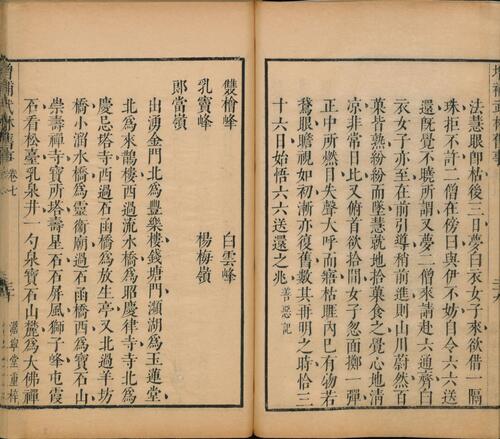 法慧眼卽枯後三日夢白衣女子來欲借一隔
珠拒不許二僧在傍曰與伊不妨自今六六送
還旣覺不曉所謂又夢二僧來請赴六通齊白
衣女子亦至在前引導稍前進則山川蔚然百
菓皆熟紛紛而墜慧就地拾菓食之覺心地淸
凉非常日比又俯首欲拾間女子忽面擲一彈
正中所燃目失聲大呼而寤枯眶內已有物若
鵞眼瞻視如初漸亦復舊數其再明之時恰三
十六日始悟六六送還之兆 善惡記
雙檜峰 白雲峰
乳竇峰 楊梅嶺
郎當嶺
出湧金門北爲豐樂樓錢塘門瀕湖爲玉蓮堂
北爲來鵲樓西過流水橋爲昭慶律寺寺北爲
慶忌塔寺西過石函橋爲放生亭又北過羊坊
橋小溜水橋爲靈衞廟過石函橋西爲寶石山
崇壽禪寺寶所塔壽星石石屏風獅子峰屯霞
石看松臺乳泉井一勺泉寶石山麓爲大佛禪
卷七